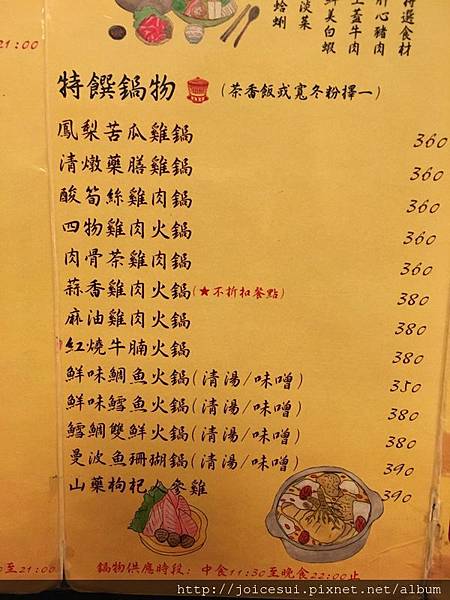 特選食材
肝心豬肉
上蓋牛肉
鮮美白蝦
淡菜
蛤蜊
21:00
特饌鍋物 (茶香飯或寬冬粉擇一)
鳳梨苦瓜雞鍋 360
清燉藥膳雞鍋 360
酸筍絲雞肉鍋 360
四物雞肉火鍋 360
肉骨茶雞肉鍋 360
蒜香雞肉火鍋(★不折扣餐點) 380
麻油雞肉火鍋 380
紅燒牛腩火鍋 380
鮮味鯛魚火鍋(清湯/味噌) 350
鮮味鱈魚火鍋(清湯/味噌) 380
鱈鯛雙鮮火鍋(清湯/味噌) 380
曼波魚珊瑚鍋(清湯/味噌) 390
山藥枸杞人參雞 390
至21:00
鍋物供應時段: 中食11:30至晚食22:00止
http://joicesui.pixnet.net/album